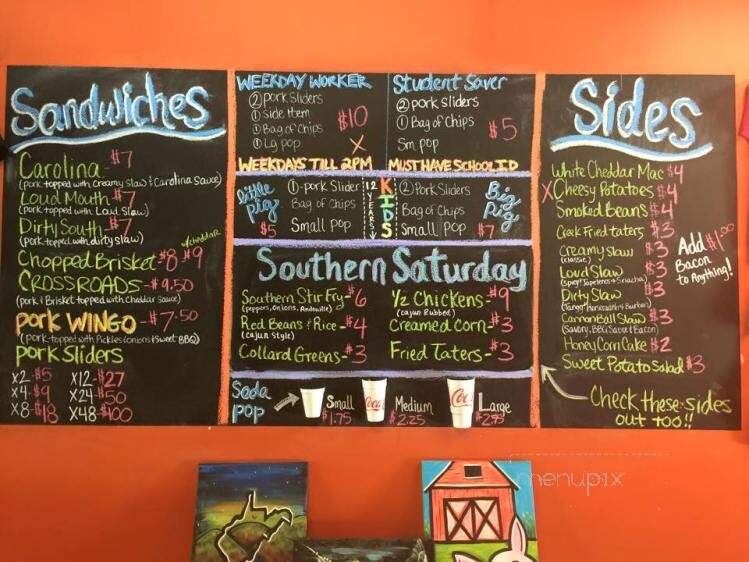 Sandwiches
Carolina - $7
(pork topped with creamy slaw & Carolina sauce)
Loud Mouth - $7
(pork topped with Loud Slaw)
Dirty South - $7
(pork topped with dirty slaw)
w/cheddar
Chopped Brisket - $8 $9
CROSSROADS - $9.50
(pork & Brisket topped with Cheddar Sauce)
pork WINGO - $7.50
(pork topped with Pickles, onions & Sweet BBQ)
pork Sliders
x2 - $5 x12 - $27
x4 - $9 x24 - $50
x8 - $18 x48 - $100
WEEKDAY WORKER
② pork sliders
① Side Item
① Bag of Chips
① Lg pop
$10
X
WEEKDAYS TILL 2PM
Student Saver
② pork sliders
① Bag of Chips
Sm. pop
$5
MUST HAVE SCHOOL ID
little Pig
$5
① pork Slider
Bag of Chips
Small pop
12 YEARS
KIDS
② Pork Sliders
Bag of Chips
Small pop
Big Pig
$7
Southern Saturday
Southern Stir Fry - $6
(peppers, Onions, Andouille)
Red Beans & Rice - $4
(Cajun Style)
Collard Greens - $3
Yz Chickens - $9
(Cajun Rubbed)
Creamed Corn - $3
Fried Taters - $3
Soda pop
Small $1.75
Medium $2.25
Large
Sides
White Cheddar Mac $4
X Cheesy Potatoes $4
Smoked Beans $4
Creek Fried taters $3
Creamy Slaw $3
(Classic)
Loud Slaw $3
Dirty Slaw $3
CannonBall Slaw $3
(Savory, BBQ Sauce & Bacon)
Honey Corn Cake $2
Sweet Potato Salad $3
Add $1.00
Bacon
to Anything!
Check these sides
out too!!
menupix